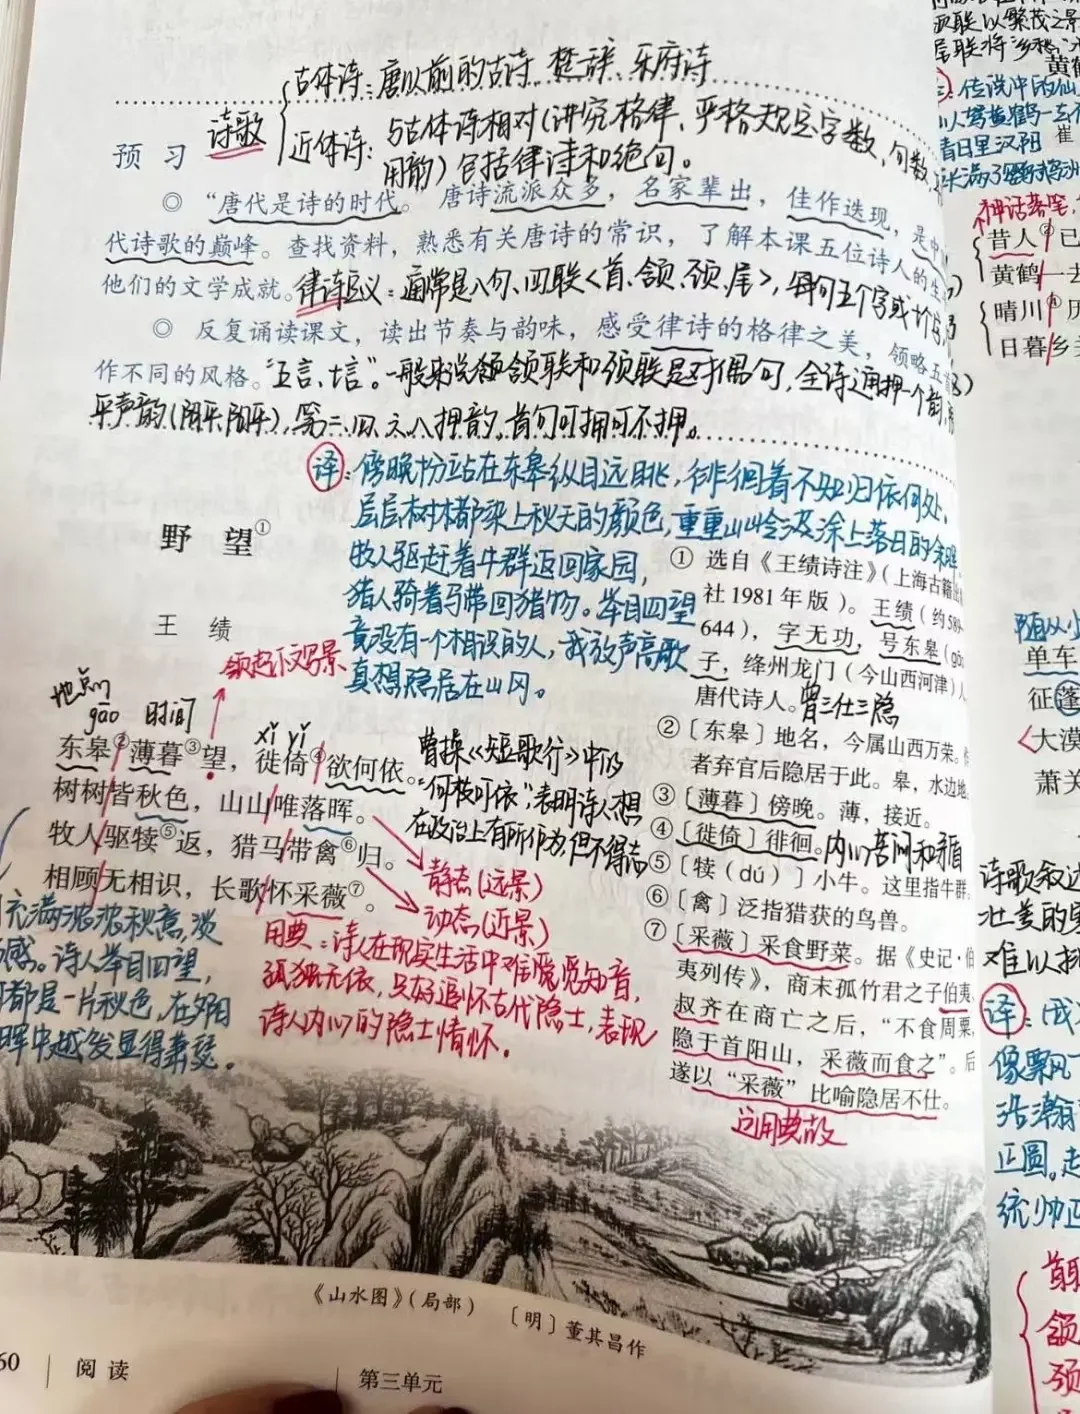 古体诗：唐以前的古诗、楚辞、乐府诗
诗歌
近体诗：与古体诗相对（讲究格律、严格规定字数、句数、
用韵）包括律诗和绝句。
预 习
◎ “唐代是诗的时代。唐诗流派众多，名家辈出，佳作迭现，是中
代诗歌的巅峰。查找资料，熟悉有关唐诗的常识，了解本课五位诗人的生
他们的文学成就。律诗定义：通常是八句、四联<首、颔、颈、尾>，每句五个字或七个字，
◎ 反复诵读课文，读出节奏与韵味，感受律诗的格律之美，领略五首
作不同的风格。“五言、七言”。一般来说颔联和颈联是对偶句，全诗通押一个韵，
平声韵（阴平阳平），第二、四、六、八押韵，首句可押可不押。
译：傍晚时分站在东皋纵目远眺，徘徊着不知归依何处、
层层树林都染上秋天的颜色，重重山岭披涂上落日的余晖。
牧人驱赶着牛群返回家园，
猎人骑着马带回猎物。举目四望
竟没有一个相识的人，我放声高歌
真想隐居在山冈。
野 望①
王 绩
领起下文写景
地点 gāo 时间
xǐ yǐ
东皋②薄暮③望，徙倚④欲何依。
树树皆秋色，山山唯落晖。
牧人驱犊⑤返，猎马带禽⑥归。
相顾无相识，长歌怀采薇⑦。
曹操《短歌行》中的
“何枝可依”，表明诗人想
在政治上有所作为，但不得志
静态（远景）
动态（近景）
用典：诗人在现实生活中难觅知音，
孤独无依，只好追怀古代隐士，表现
诗人内心的隐士情怀。
充满浓浓秋意，淡
感。诗人举目四望，
都是一片秋色，在夕阳
晖中越发显得萧瑟。
① 选自《王绩诗注》（上海古籍出
社1981年版）。王绩（约589-
644），字无功，号东皋（gāo
子，绛州龙门（今山西河津）人
唐代诗人。曾三仕三隐
②〔东皋〕地名，今属山西万荣。作
者弃官后隐居于此。皋，水边地。
③〔薄暮〕傍晚。薄，接近。
④〔徙倚〕徘徊。内心苦闷和矛盾
⑤〔犊（dú）〕小牛。这里指牛群。
⑥〔禽〕泛指猎获的鸟兽。
⑦〔采薇〕采食野菜。据《史记·伯
夷列传》，商末孤竹君之子伯夷、
叔齐在商亡之后，“不食周粟，
隐于首阳山，采薇而食之”。后
遂以“采薇”比喻隐居不仕。
运用典故
《山水图》（局部） 〔明〕董其昌作
60 阅读 第三单元
联以繁茂之景
尾联将乡愁
黄鹤
传说中的仙
崔
昔日里汉阳
神话落笔
昔人③已
黄鹤一去
晴川④历
日暮乡关
单车
征蓬
大漠
萧关
诗歌叙述
壮美的
难以抑
译：
像飘
浩瀚
正圆。
统帅正
首联
颔
颈